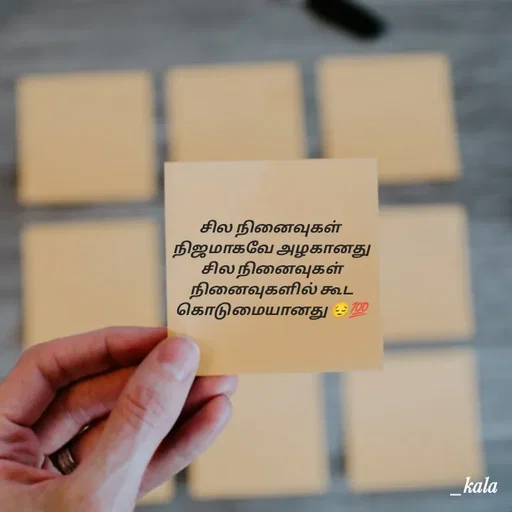 சில நினைவுகள்
நிஜமாகவே அழகானது
சில நினைவுகள்
நினைவுகளில் கூட
கொடுமையானது 😔💯
_kala